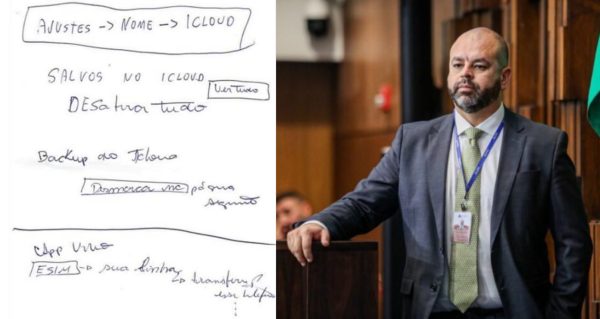 AJUSTES -> NOME -> ICLOUD
SALVOS NO ICLOUD
Ver tudo
DESativar tudo
Backup do Icloud
Desmarca na página
seguinte
App Vivo
ESIM -> sua linha
-> transferir p/
esse telefone